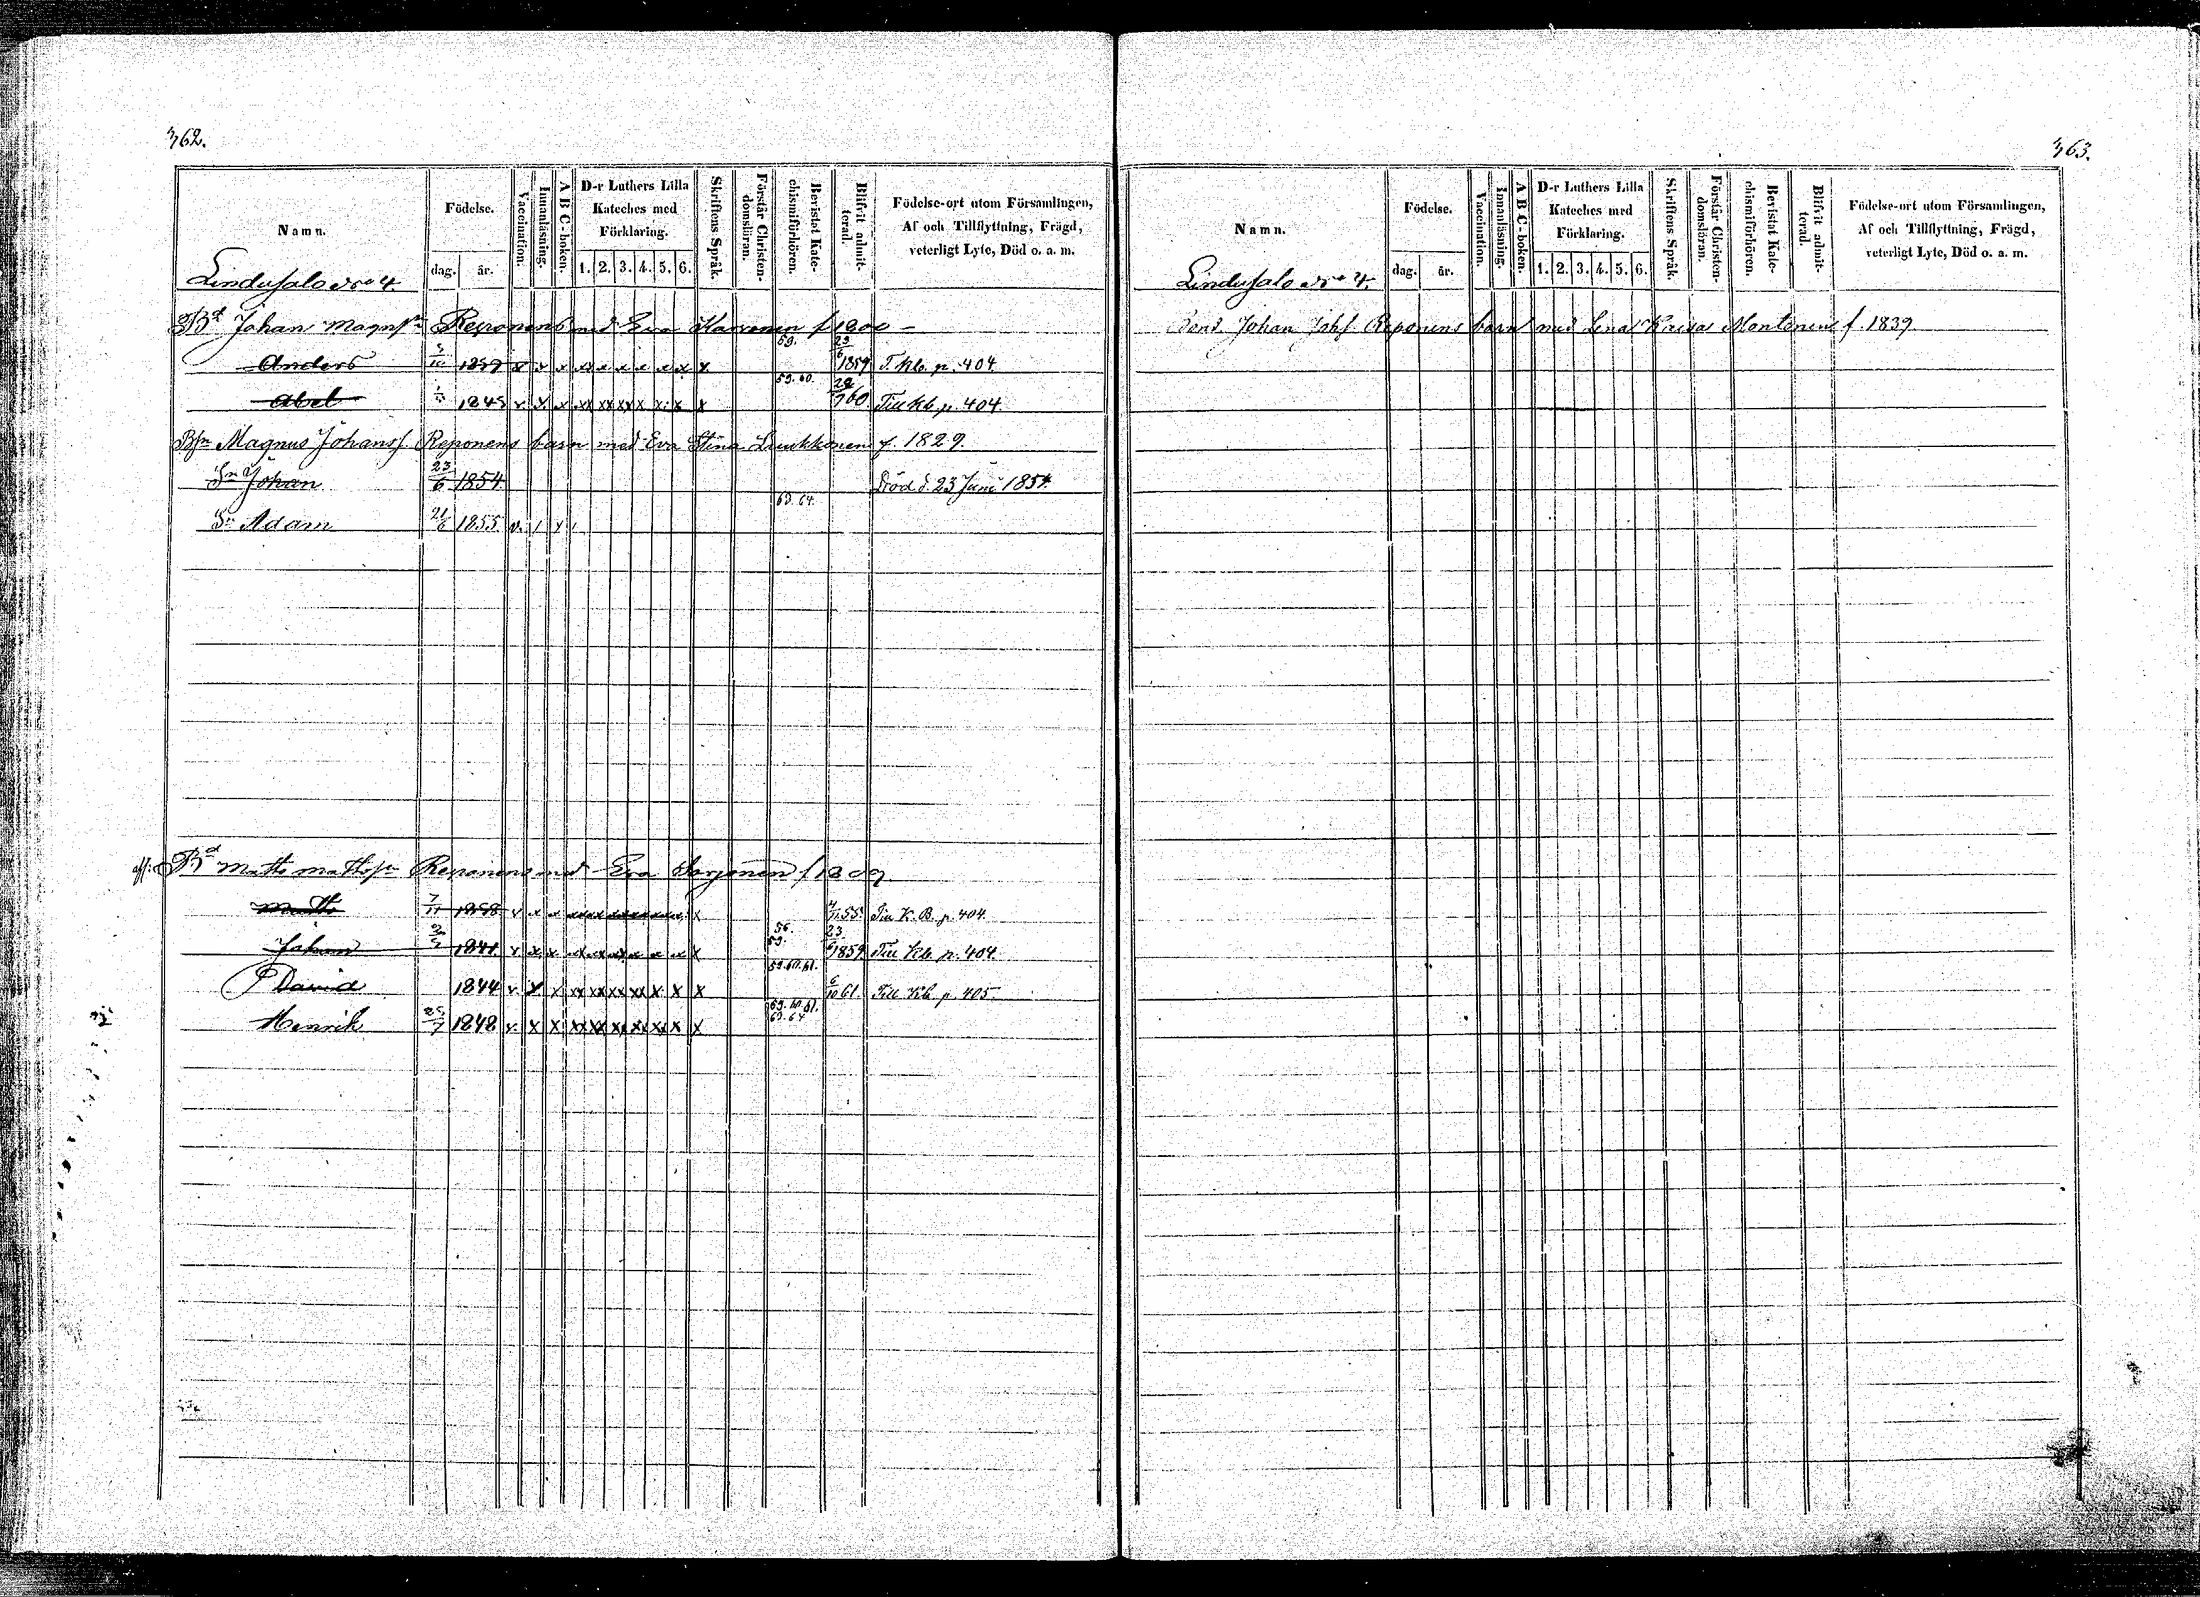 362.
Namn.
Födelse.
dag. år.
Vaccination.
Innanläsning.
A B C - boken.
D-r Luthers Lilla
Kateches med
Förklaring.
1. 2. 3. 4. 5. 6.
Skriftens Språk.
Förstår Christen-
domsläran.
Bevistat Kate-
chismiförhören.
Blifvit admit-
terad.
Födelse-ort utom Församlingen,
Af och Tillflyttning, Frägd,
veterligt Lyte, Död o. a. m.
Lindusalo No 4.
Bd Johan Magnss:n Reponens med Eva Karvonen f 1800 -
Anders 1839 v x x xx x x x x x x 59. 23/6 1859 T. Kb. p. 404.
Abel 1843 v. x x xx xx xx x x x x 59. 60. 60. Till Kb. p. 404.
Bsn Magnus Johanss. Reponens barn med Eva Stina Luukkonen f. 1829.
Sn Johan 23/6 1854 Död d. 23 Juni 1854.
Sn Adam 21/6 1855. v. / x / 63. 64
Bd Matts Mattss:n Reponens med Eva Sorjonen f 1809
Matts 7/11 1838 v x x x 55. Till K. B. p. 404.
Johan 1841. v x x x 56. 59. 23/6 1859 Till Kb. p. 404.
David 1844 v x x xx xx xx xx x x x 59. 60. 61. 6/10 61. Till Kb p. 405.
Henrik 25/7 1848 v. x x xx xx xx xx xx x x 59. 60. 61. 63. 64
363.
Namn.
Födelse.
dag. år.
Vaccination.
Innanläsning.
A B C - boken.
D-r Luthers Lilla
Kateches med
Förklaring.
1. 2. 3. 4. 5. 6.
Skriftens Språk.
Förstår Christen-
domsläran.
Bevistat Kate-
chismiförhören.
Blifvit admit-
terad.
Födelse-ort utom Församlingen,
Af och Tillflyttning, Frägd,
veterligt Lyte, Död o. a. m.
Lindusalo No 4.
Johan Johss Reponens barn med Lena Kaisa Montonen f. 1839